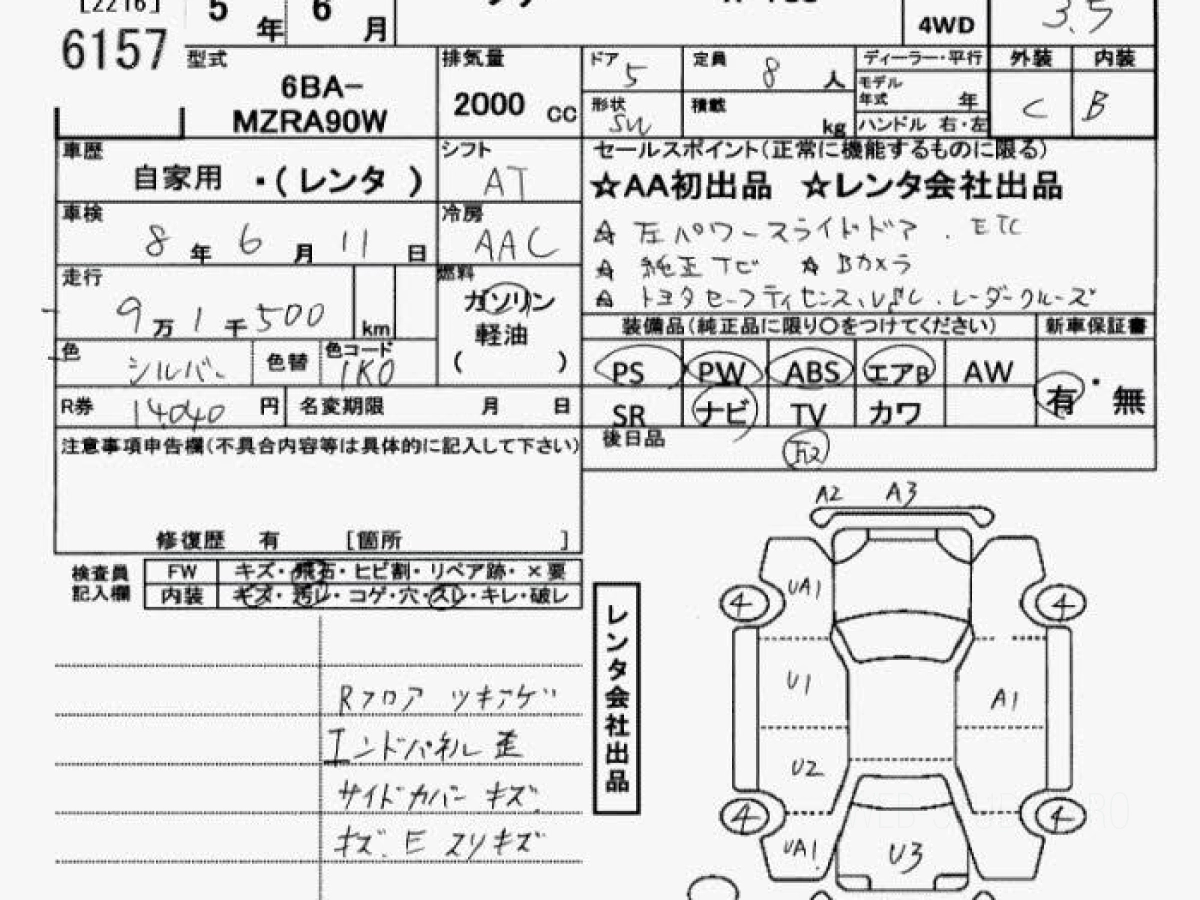 [2216]
5 年 6 月
4WD
3.5
6157
型式
6BA-
MZRA90W
排気量
2000 cc
ドア 5
定員 8 人
形状 SW
積載 kg
ディーラー・平行
モデル年式 年
ハンドル 右・左
外装 C
内装 B
車歴
自家用 ・(レンタ )
シフト AT
車検
8 年 6 月 11 日
冷房 AAC
走行
9 万 1 千 500 km
燃料
ガソリン
軽油
( )
色 シルバー
色替
色コード 1K0
R券 14040 円
名変期限 月 日
セールスポイント(正常に機能するものに限る)
☆AA初出品 ☆レンタ会社出品
☆ 左パワースライドドア . ETC
☆ 純正TV ☆ Bカメラ
☆ トヨタセーフティセンス、VSC、レーダークルーズ
装備品(純正品に限り○をつけてください)
新車保証書
PS PW ABS エアB AW
有・無
SR ナビ TV カワ
後日品
注意事項申告欄(不具合内容等は具体的に記入して下さい)
修復歴 有 [箇所 ]
検査員記入欄
FW キズ・飛石・ヒビ割・リペア跡・×要
内装 キズ・汚レ・コゲ・穴・スレ・キレ・破レ
Rフロア ツキアゲ
エンドパネル 歪
サイドカバー キズ
キズ、E スリキズ
レンタ会社出品
A2 A3
UA1
4 4
U1 A1
U2
4 4
UA1 U3